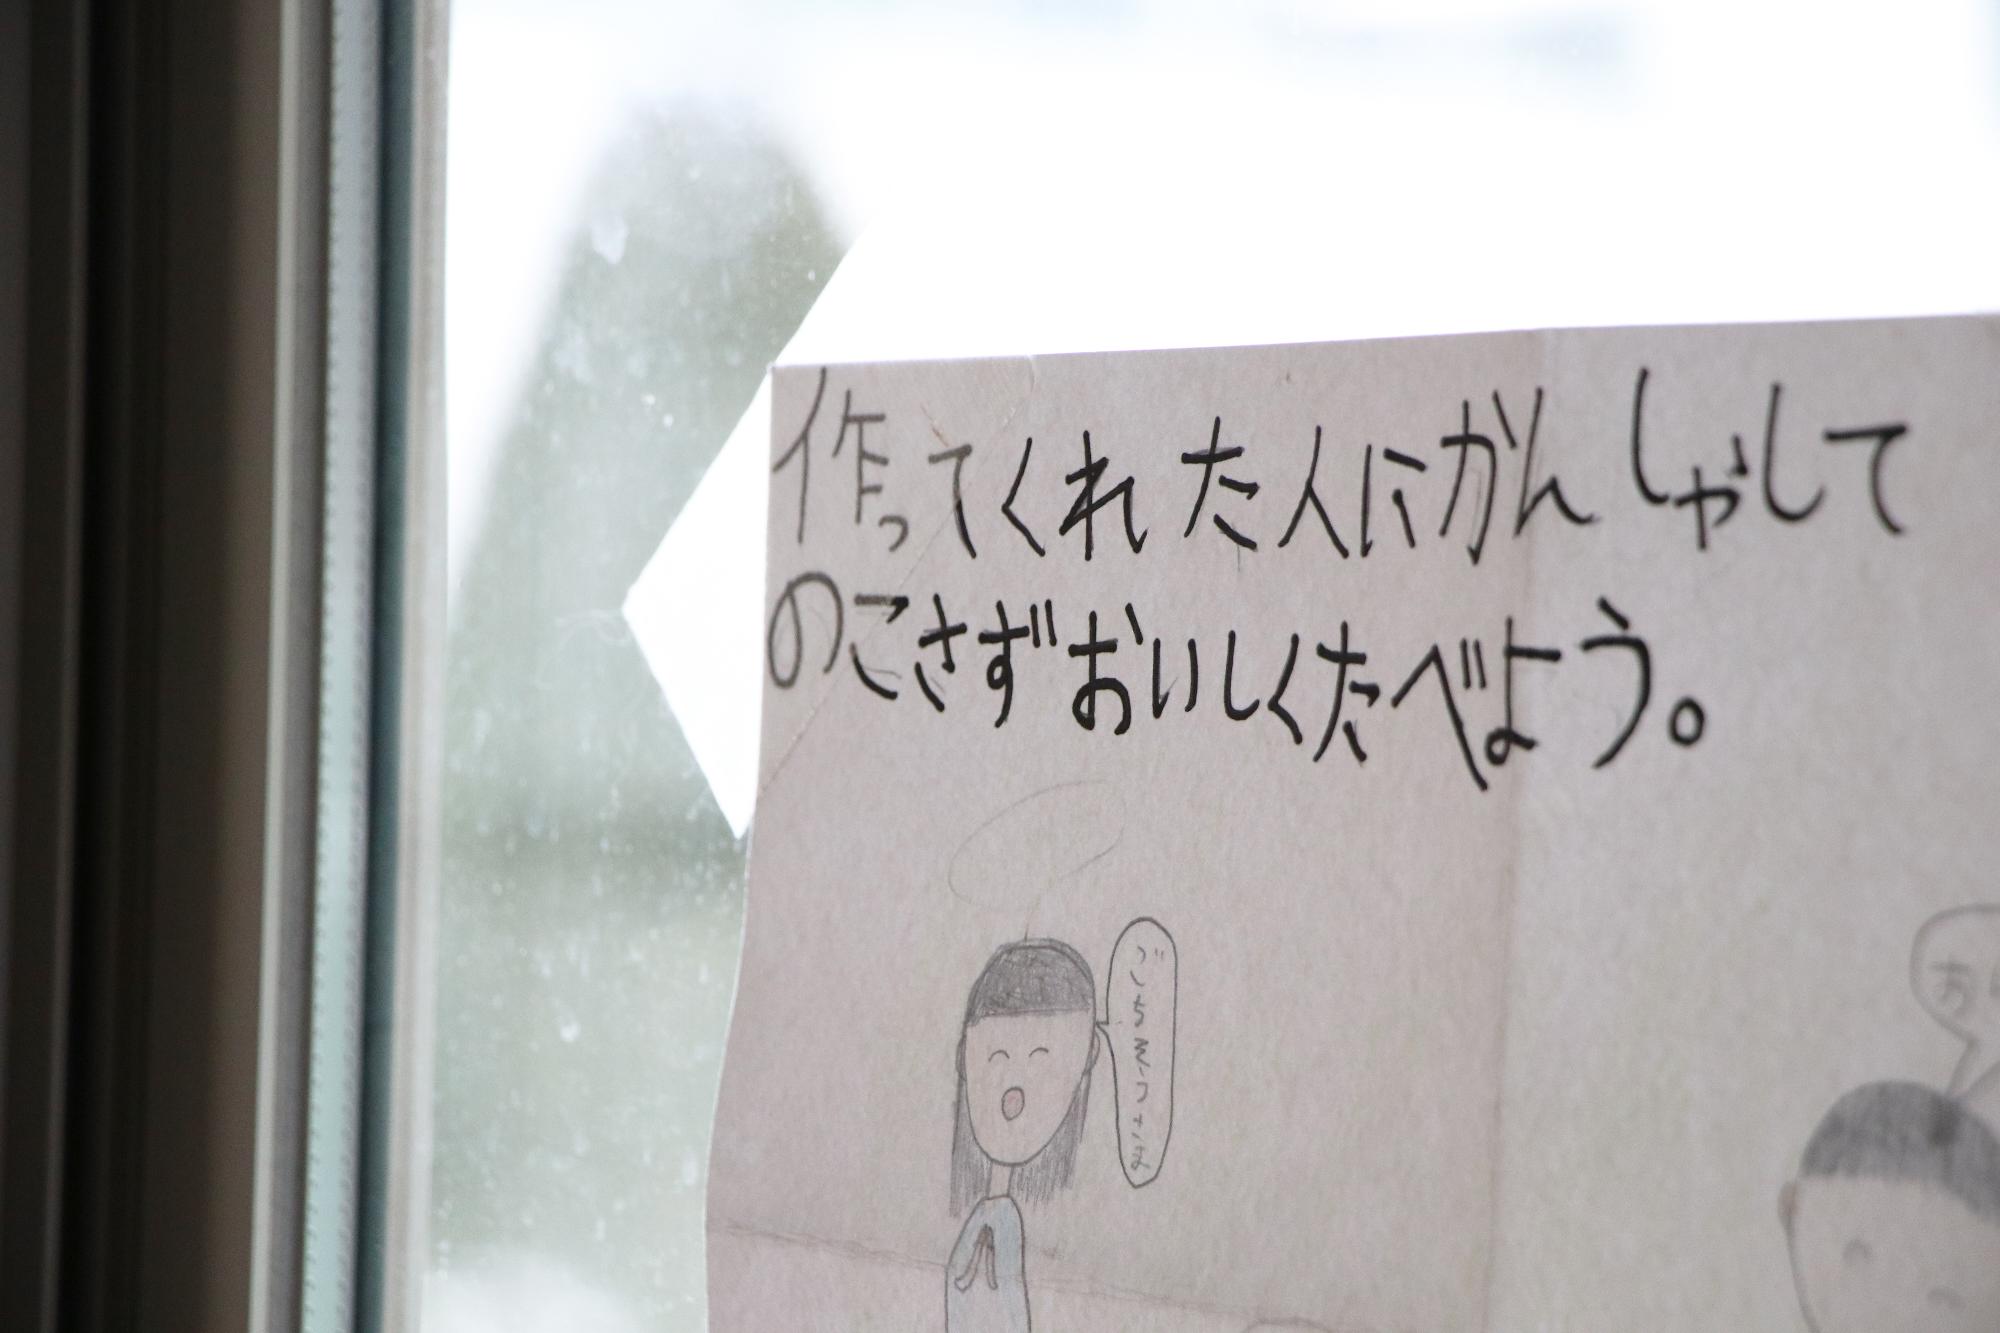 作ってくれた人にかんしゃして
のこさずおいしくたべよう。
ごちそうさまでした